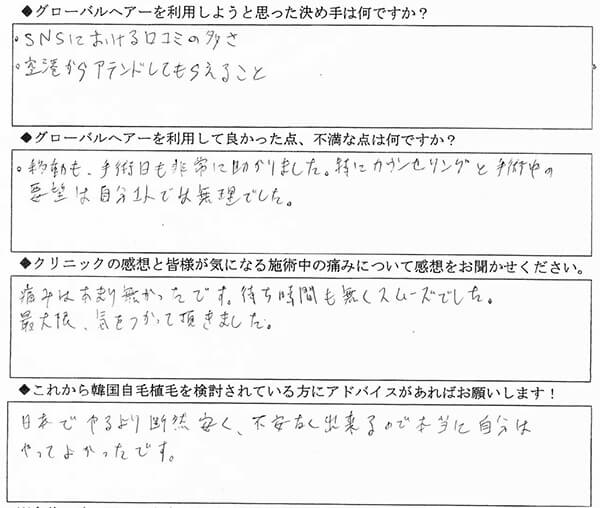 ◆グローバルヘアーを利用しようと思った決め手は何ですか?
・SNSにおける口コミの多さ
・空港からアテンドしてもらえること
◆グローバルヘアーを利用して良かった点、不満な点は何ですか?
・移動も、手術日も非常に助かりました。特にカウンセリングと手術中の
要望は自分1人では無理でした。
◆クリニックの感想と皆様が気になる施術中の痛みについて感想をお聞かせください。
痛みはあまり無かったです。待ち時間も無くスムーズでした。
最大限、気をつかって頂きました。
◆これから韓国自毛植毛を検討されている方にアドバイスがあればお願いします!
日本でやるより断然安く、不安なく出来るので本当に自分は
やってよかったです。